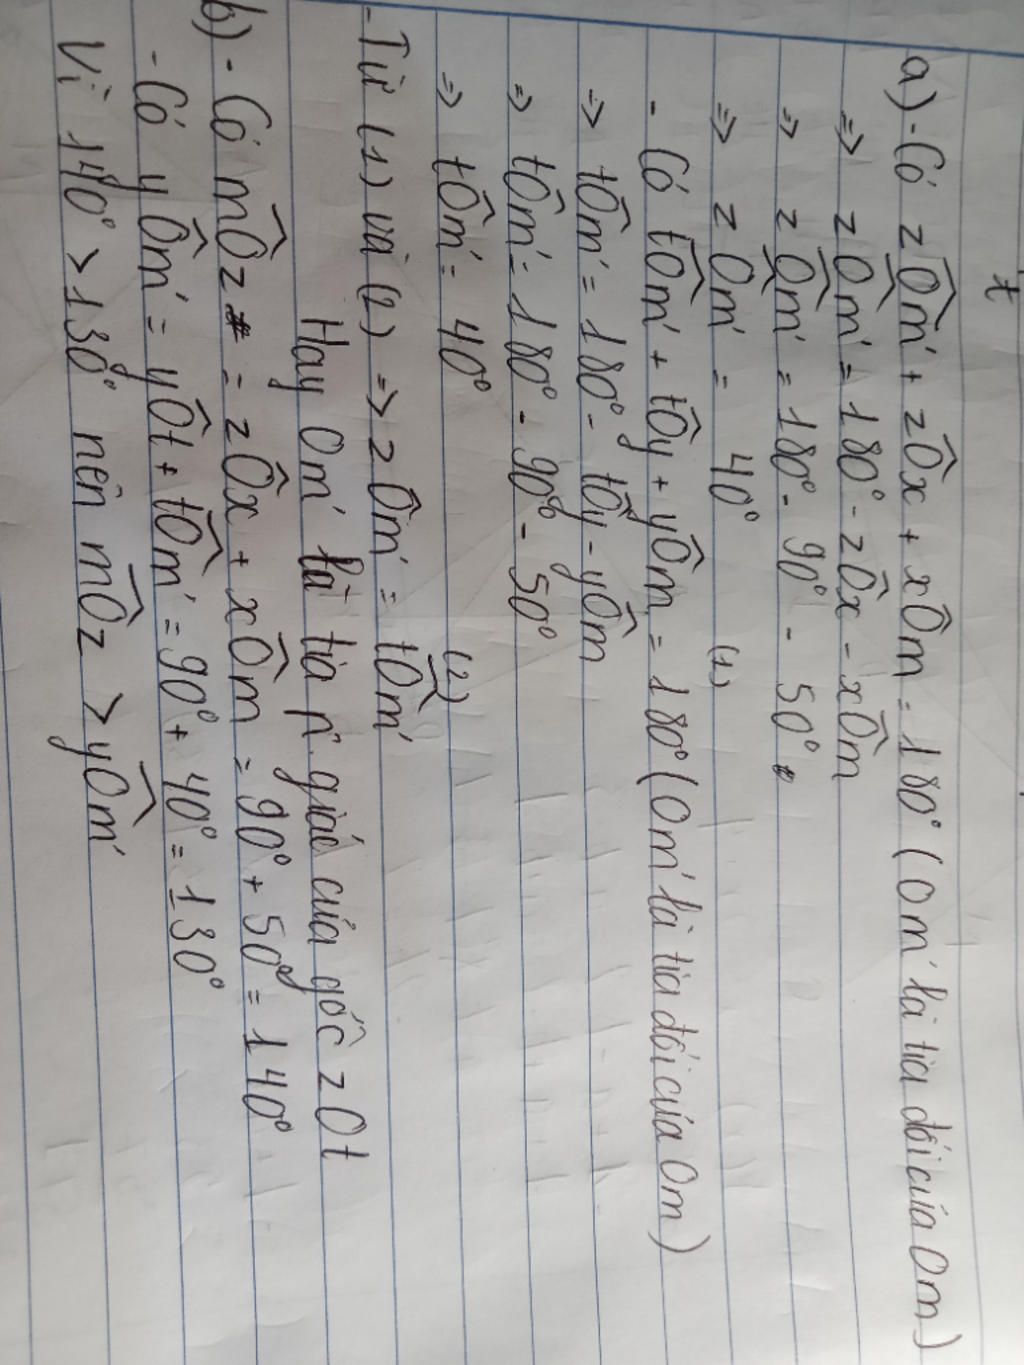 t
a) - Có zÔm' + zÔx + xÔm = 180° (Om' là tia đối của Om)
=> zÔm' = 180° - zÔx - xÔm
=> zÔm' = 180° - 90° - 50°
=> zÔm' = 40° (1)
- Có tÔm' + tÔy + yÔm = 180° (Om' là tia đối của Om)
=> tÔm' = 180° - tÔy - yÔm
=> tÔm' = 180° - 90° - 50°
=> tÔm' = 40° (2)
- Từ (1) và (2) => zÔm' = tÔm'
Hay Om' là tia p. giác của góc zOt
b) - Có mÔz = zÔx + xÔm = 90° + 50° = 140°
- Có yÔm' = yÔt + tÔm' = 90° + 40° = 130°
Vì 140° > 130° nên mÔz > yÔm'